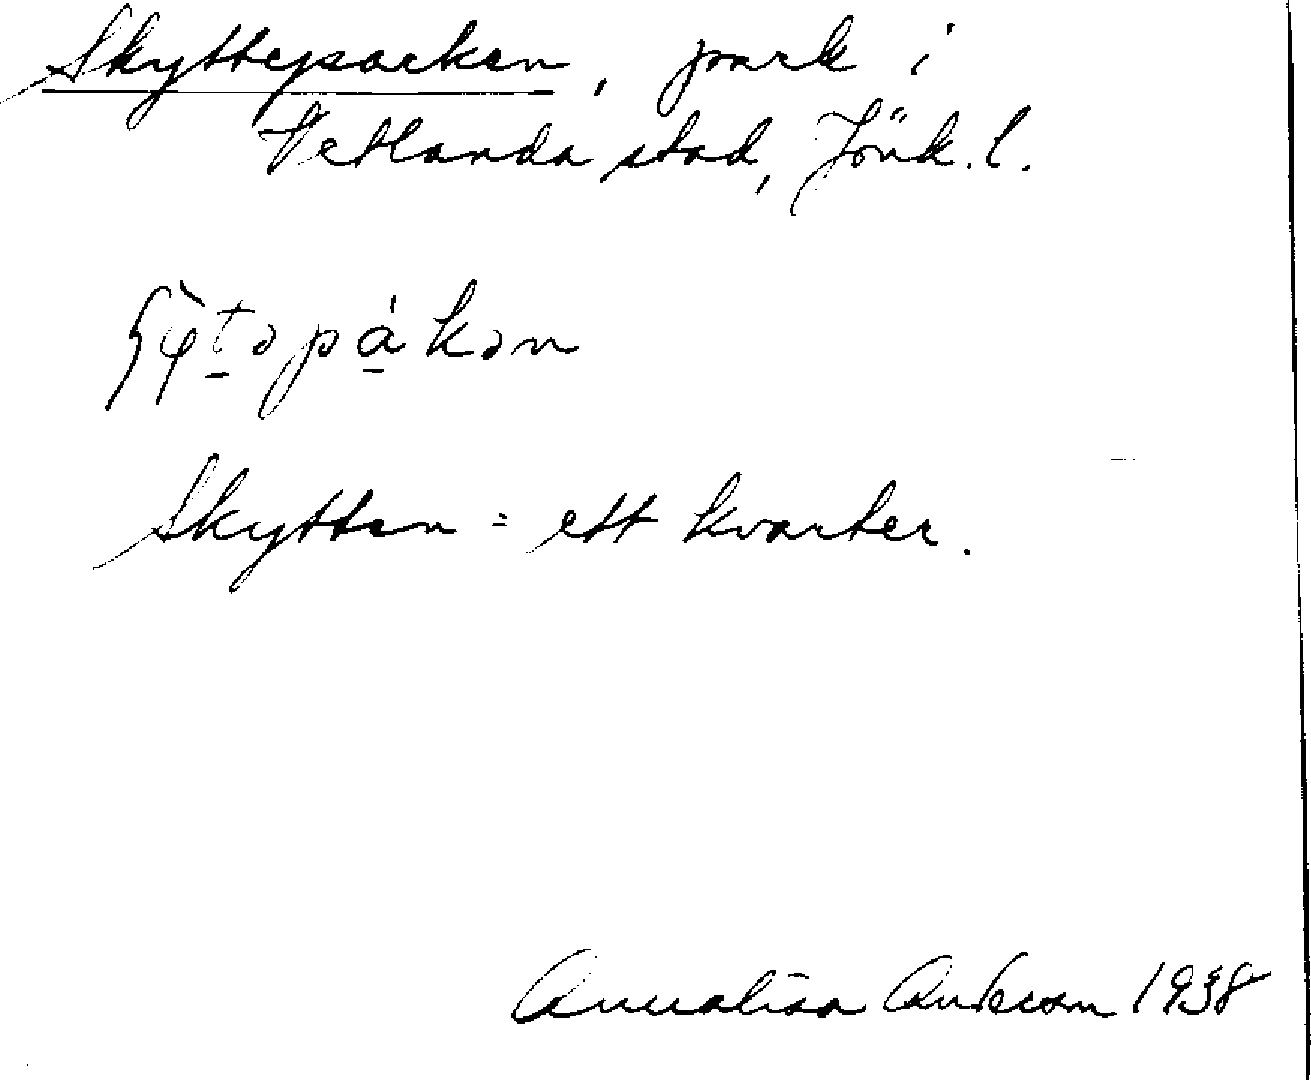 Skytteparken, park i
Vetlanda stad, Jönk. l.
Skytten = ett kvarter.
Annalisa Anderson 1938